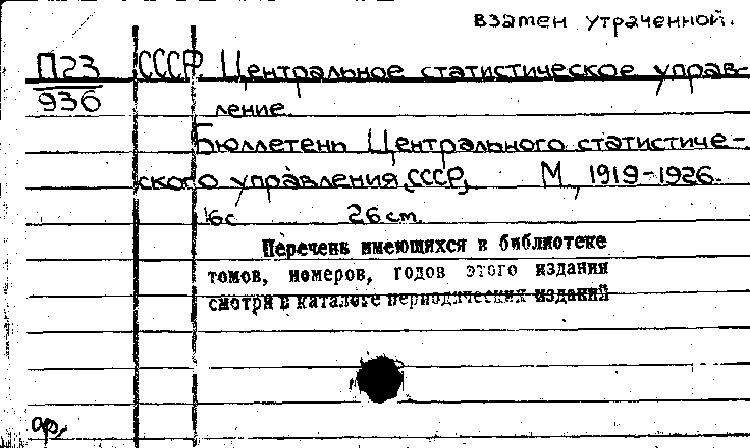 взамен утраченной.
П23 СССР. Центральное статистическое управ-
936
ление.
Бюллетень Центрального статистиче-
ского управления СССР. М, 1919-1926.
26 см.
Перечень имеющихся в библиотеке
томов, номеров, годов этого издания
смотри в каталоге периодических изданий